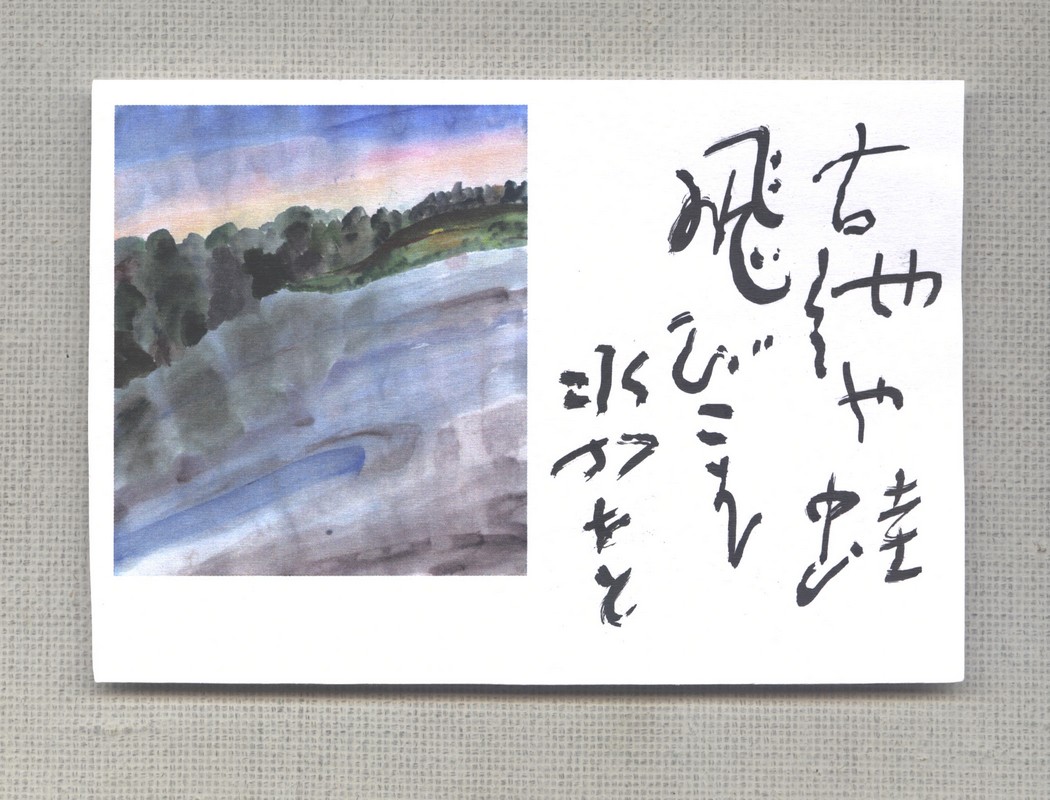 古池や蛙
飛びこむ
水のおと